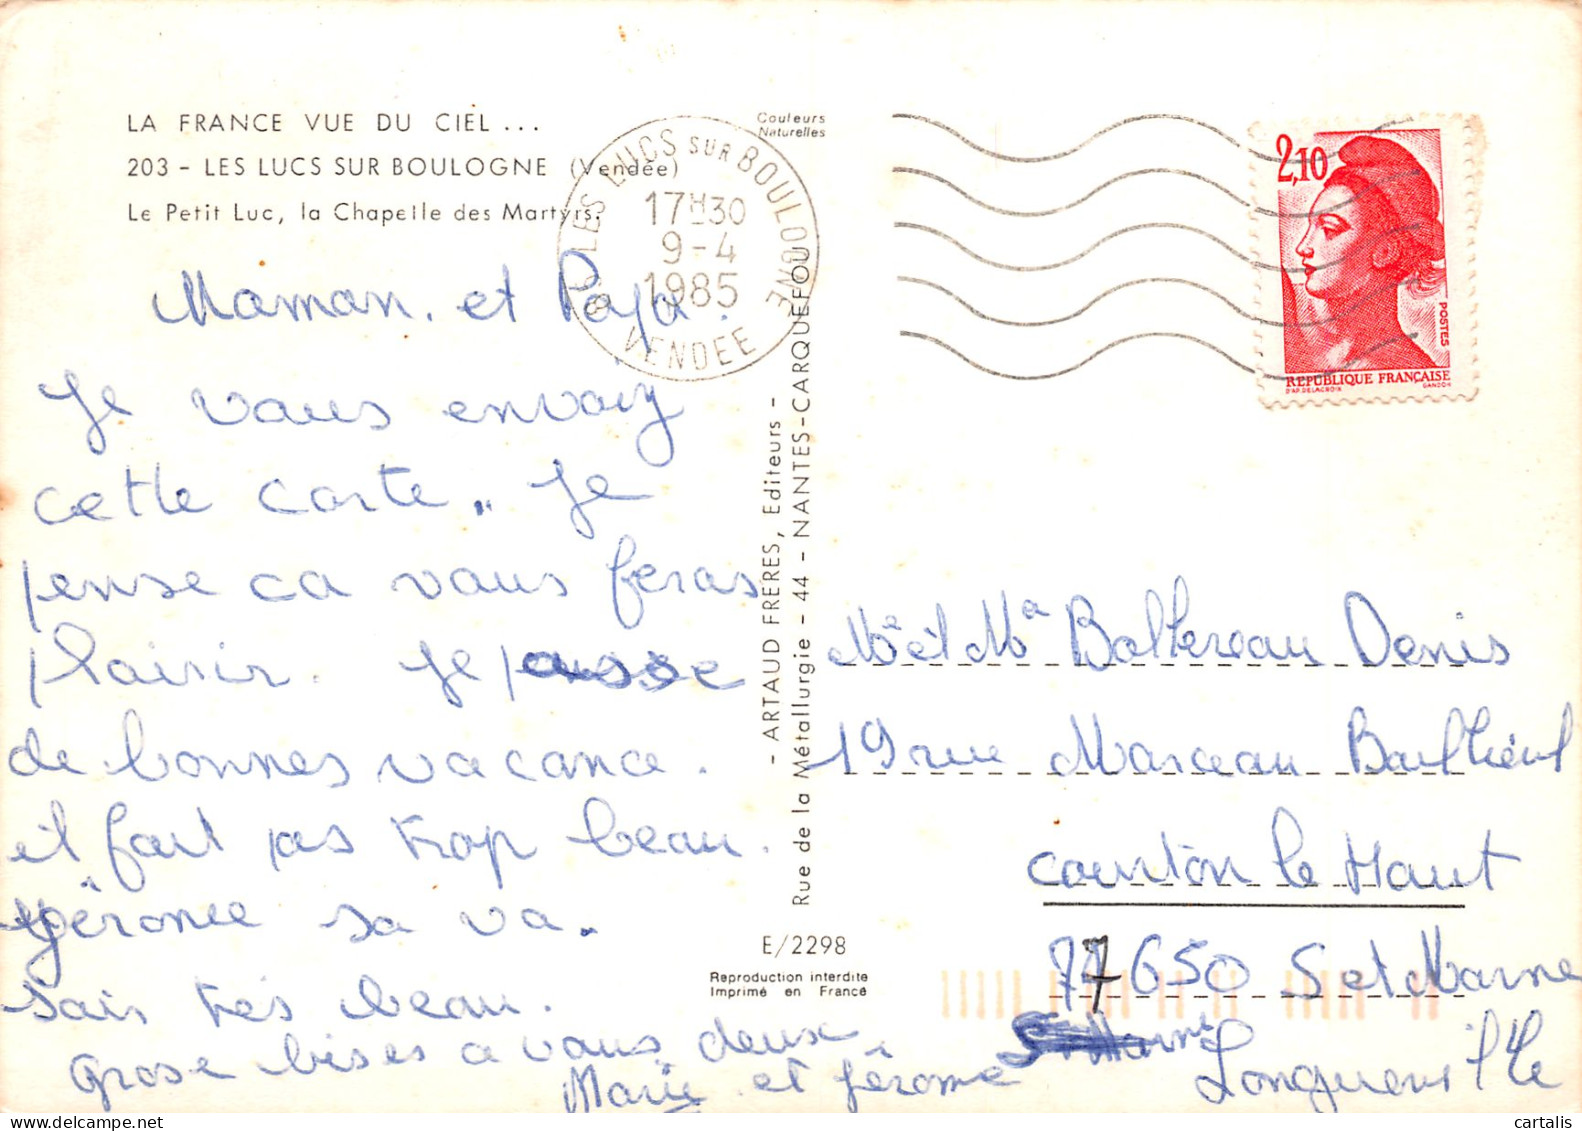 LA FRANCE VUE DU CIEL ...
203 - LES LUCS SUR BOULOGNE (Vendée)
Le Petit Luc, la Chapelle des Martyrs.
Couleurs
Naturelles
85 LES LUCS SUR BOULOGNE
17H30
9-4
1985
VENDEE
2,10
POSTES
REPUBLIQUE FRANÇAISE
D'AP. DELACROIX GANDON
Maman. et Papa.
Je vous envoiy
cette carte. Je
pense ca vous feras
plaisir. Je passe
de bonnes vacance.
et fait pas trop beau.
Jérome sa va.
Sais trés beau.
Grose bises a vous deux
Marie et Jérome
- ARTAUD FRÈRES, Editeurs -
Rue de la Métallurgie - 44 - NANTES-CARQUEFOU
E/2298
Reproduction interdite
Imprimé en France
Denis
19 rue Marceau
Courton le Haut
77650 S et Marne
Longueville